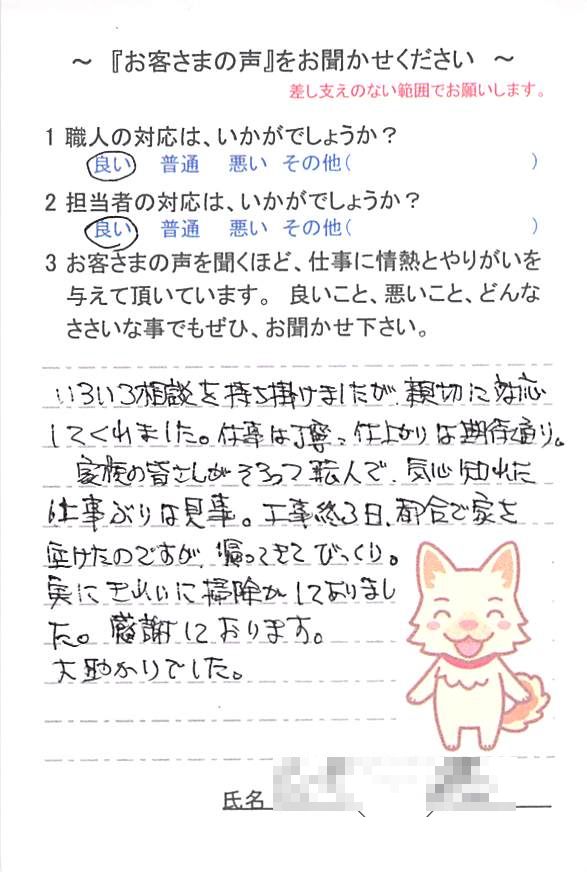 ～ 『お客さまの声』をお聞かせください ～
差し支えのない範囲でお願いします。
1 職人の対応は、いかがでしょうか？
良い 普通 悪い その他( )
2 担当者の対応は、いかがでしょうか？
良い 普通 悪い その他( )
3 お客さまの声を聞くほど、仕事に情熱とやりがいを
与えて頂いています。 良いこと、悪いこと、どんな
ささいな事でもぜひ、お聞かせ下さい。
いろいろ相談を持ち掛けましたが、親切に対応
してくれました。仕事は丁寧、仕上がりは期待通り。
家族の皆さんがそろって職人で、気心知れた
仕事ぶりは見事。工事終る日、都合で家を
空けたのですが、帰ってきてびっくり。
実にきれいに掃除がしてありまし
た。感謝しております。
大助かりでした。
氏名 ( )